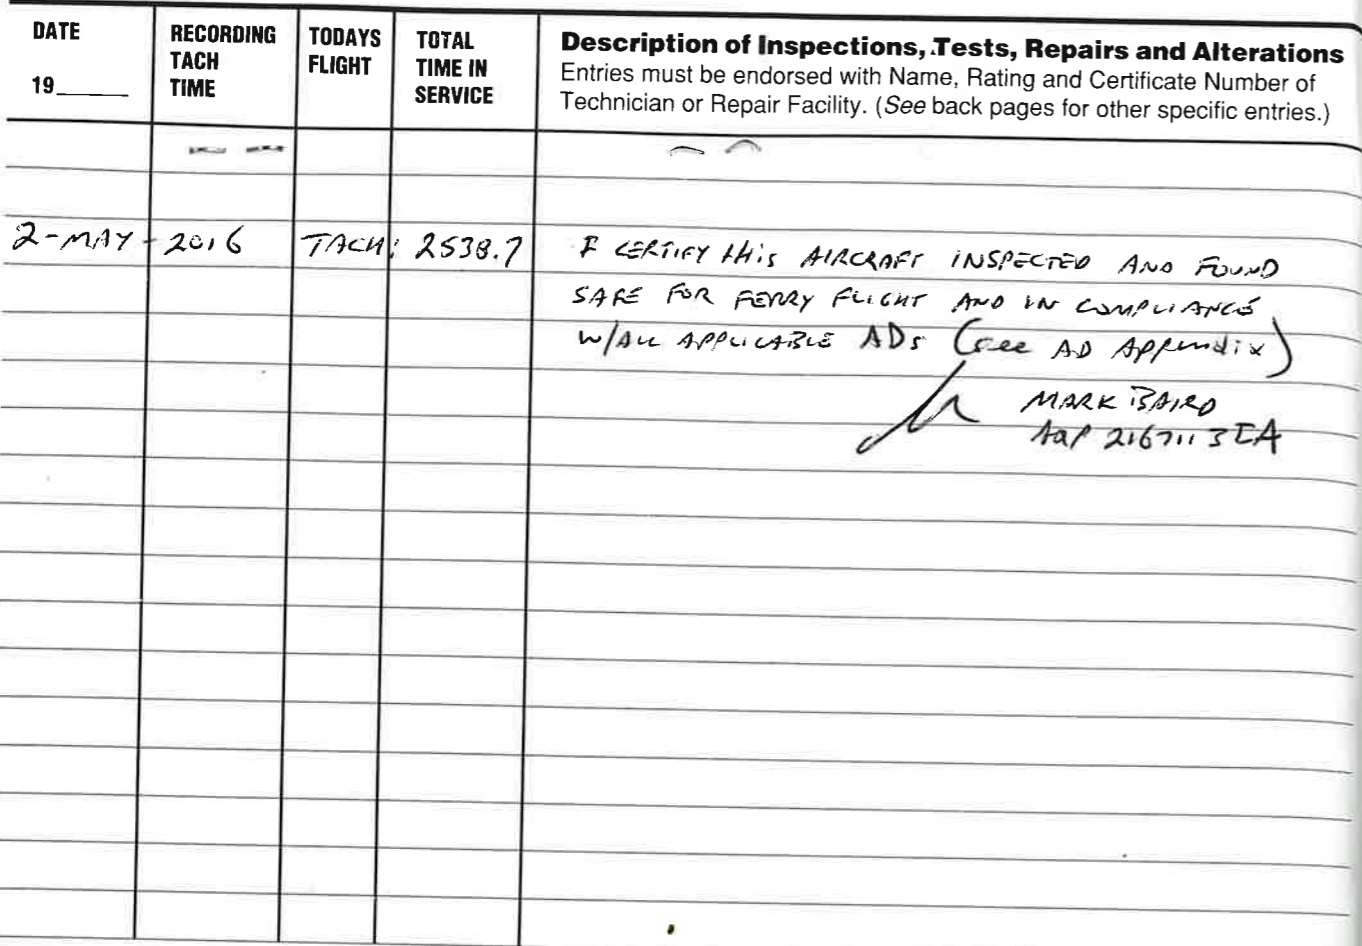 DATE
19______
RECORDING
TACH
TIME
TODAYS
FLIGHT
TOTAL
TIME IN
SERVICE
Description of Inspections, Tests, Repairs and Alterations
Entries must be endorsed with Name, Rating and Certificate Number of
Technician or Repair Facility. (See back pages for other specific entries.)
2-MAY-2016 TACH: 2538.7
I CERTIFY THIS AIRCRAFT INSPECTED AND FOUND
SAFE FOR FERRY FLIGHT AND IN COMPLIANCE
W/ALL APPLICABLE ADs (see AD Appendix)
MARK BAIRD
A&P 2167113 IA